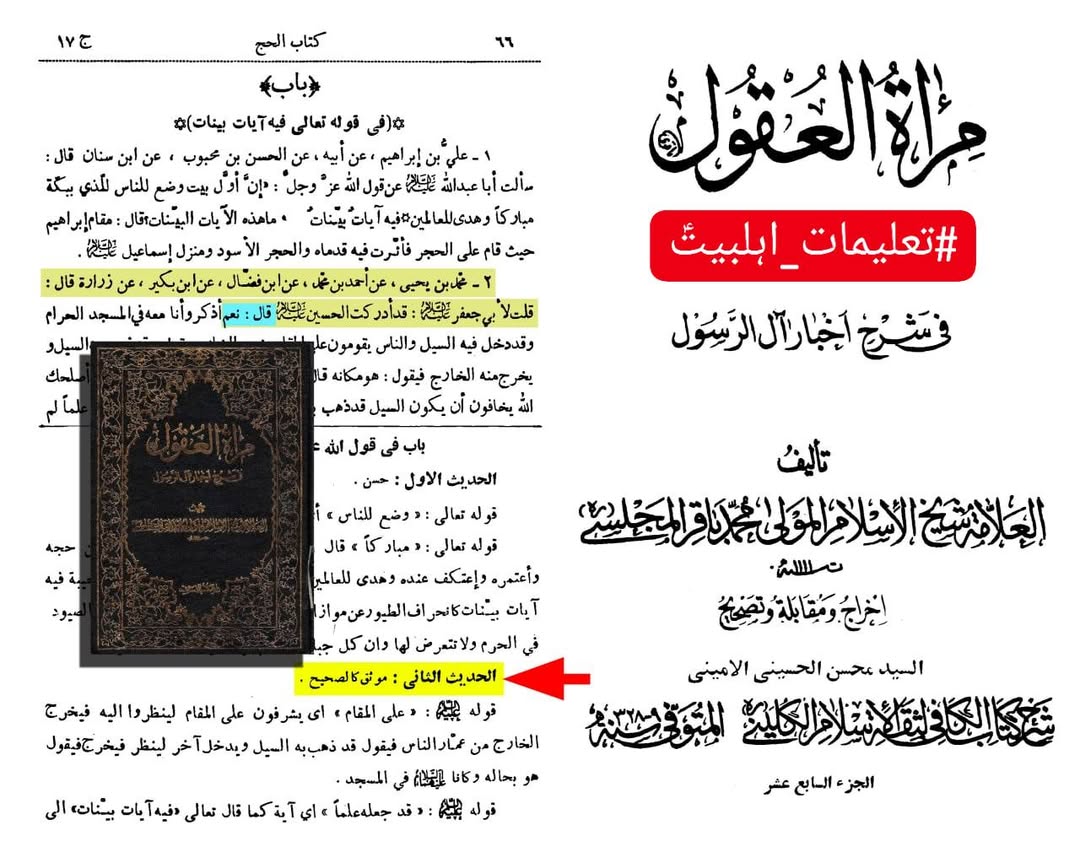 مِرآةُ العُقول
#تعلیمات_اہلبیتؑ
فى شَرح أخبار آل الرَسُول
تأليفُ
العَلّامَة شَيخ الإسْلام المَولى مُحَمّد باقر المجلسى
اِخراج وَمُقابَلة وتصَحِيح
السيد محسن الحسينى الامينى
شرح كتاب الكافى لثقة الاسلام الكلينى المتوفى سنة ٣٢٨-٩
الجزء السابع عشر
٦٦ كتاب الحج ج ١٧
﴿باب﴾
✡(فى قوله تعالى فيه آيات بينات)✡
١ ـ عليُّ بن إبراهيم ، عن أبيه ، عن الحسن بن محبوب ، عن ابن سنان قال :
سألت أبا عبدالله عليه السلام عن قول الله عزَّ وجلَّ : «إنَّ أوَّل بيت وضع للناس للّذي ببكّة
مباركاً وهدى للعالمين✡فيه آياتٌ بيّناتٌ ما هذه الآيات البيّنات؟قال : مقام إبراهيم
حيث قام على الحجر فأثّرت فيه قدماه والحجر الأسود ومنزل إسماعيل عليه السلام .
٢ ـ محمّد بن يحيى ، عن أحمد بن محمّد ، عن ابن فضّال ، عن ابن بكير ، عن زرارة قال :
قلت لأبي جعفر عليه السلام : قد أدركت الحسين عليه السلام قال : نعم أذكر وأنا معه في المسجد الحرام
وقد دخل فيه السيل والناس يقومون السيل و
يخرج منه الخارج فيقول : هو مكانه قال أصلحك
الله يخافون أن يكون السيل قد ذهب علماً لم
باب فى قول الله
الحديث الاول : حسن .
قوله تعالى : « وضع للناس »
قوله تعالى : « مباركاً » قال حجه
وأعتمره و إعتكف عنده وهدى للعالمين فيه
آيات بيّنات كانحراف الطيور عن الصيود
في الحرم ولا تتعرض لها وان كل
الحديث الثانى : موثق كالصحيح .
قوله عليه السلام : « على المقام » اى يشرفون على المقام لينظروا اليه فيخرج
الخارج من عند الناس فيقول قد ذهب به السيل ويدخل آخر لينظر فيخرج فيقول
هو بحاله وكانا عليهما السلام في المسجد .
قوله عليه السلام : « قد جعله علماً » اي آية كما قال تعالى «فيه آيات بيّنات» الى
مرآة العقول
فى شرح أخبار آل الرسول